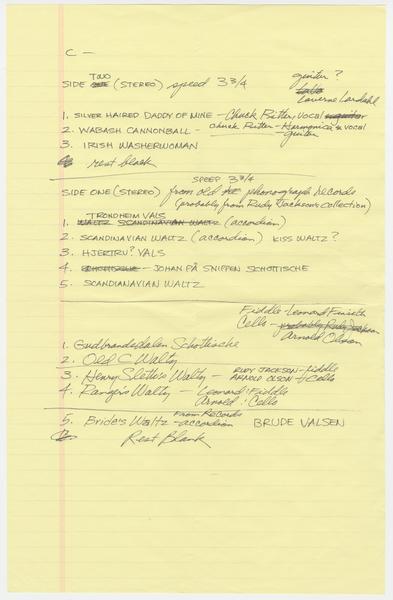 C —
TWO guitar ?
SIDE ONE (STEREO) speed 3 3/4
Laverne Lardahl
1. SILVER HAIRED DADDY OF MINE - Chuck Ritter, VOCAL guitar
2. WABASH CANNONBALL - Chuck Ritter - Harmonica & VOCAL
guitar
3. IRISH WASHERWOMAN
rest blank
SPEED 3 3/4
SIDE ONE (STEREO) from old phonograph records
(probably from Rudy Jackson's collection)
TRONDHEIM VALS
1. WALTZ SCANDINAVIAN WALTZ (accordian)
2. SCANDINAVIAN WALTZ (accordian) KISS WALTZ ?
3. HJERTRU? VALS
4. SCHOTTISCHE - JOHAN PÅ SNIPPEN SCHOTTISCHE
5. SCANDIANAVIAN WALTZ
Fiddle - Leonard
Cello - probably Rudy Jackson
Arnold Olson
1. Gudbrandsdalen Schottische
2. Old C Waltz
3. Henry Slette's Waltz - RUDY JACKSON - fiddle
ARNOLD OLSON - Cello
4. Ranger's Waltz - Leonard : Fiddle
Arnold : Cello
5. Bride's Waltz - From Records accordian BRUDE VALSEN
Rest Blank